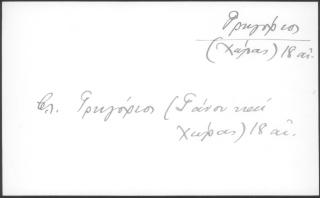 Γρηγόριος
(Χώρας) 18 αἰ.
Βλ. Γρηγόριος (Γάνου καὶ
Χώρας) 18 αἰ.